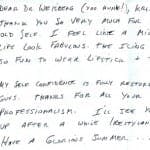 DEAR DR WEISBERG (YOU AUNH!), KRI
THANK YOU SO VERY MUCH FOR
OLD SELF. I FEEL LIKE A MI
LIFE LOOK FABULOUS. THE ICING
SO FUN TO WEAR LIPSTICK +
MY SELF CONFIDENCE IS FULLY RESTOR
GUYS. THANKS FOR ALL YOUR
PROFESSIONALISM. I'LL SEE Y
UP AFTER A WHILE (RESTYLAN
HAVE A GLORIOUS SUMMER...